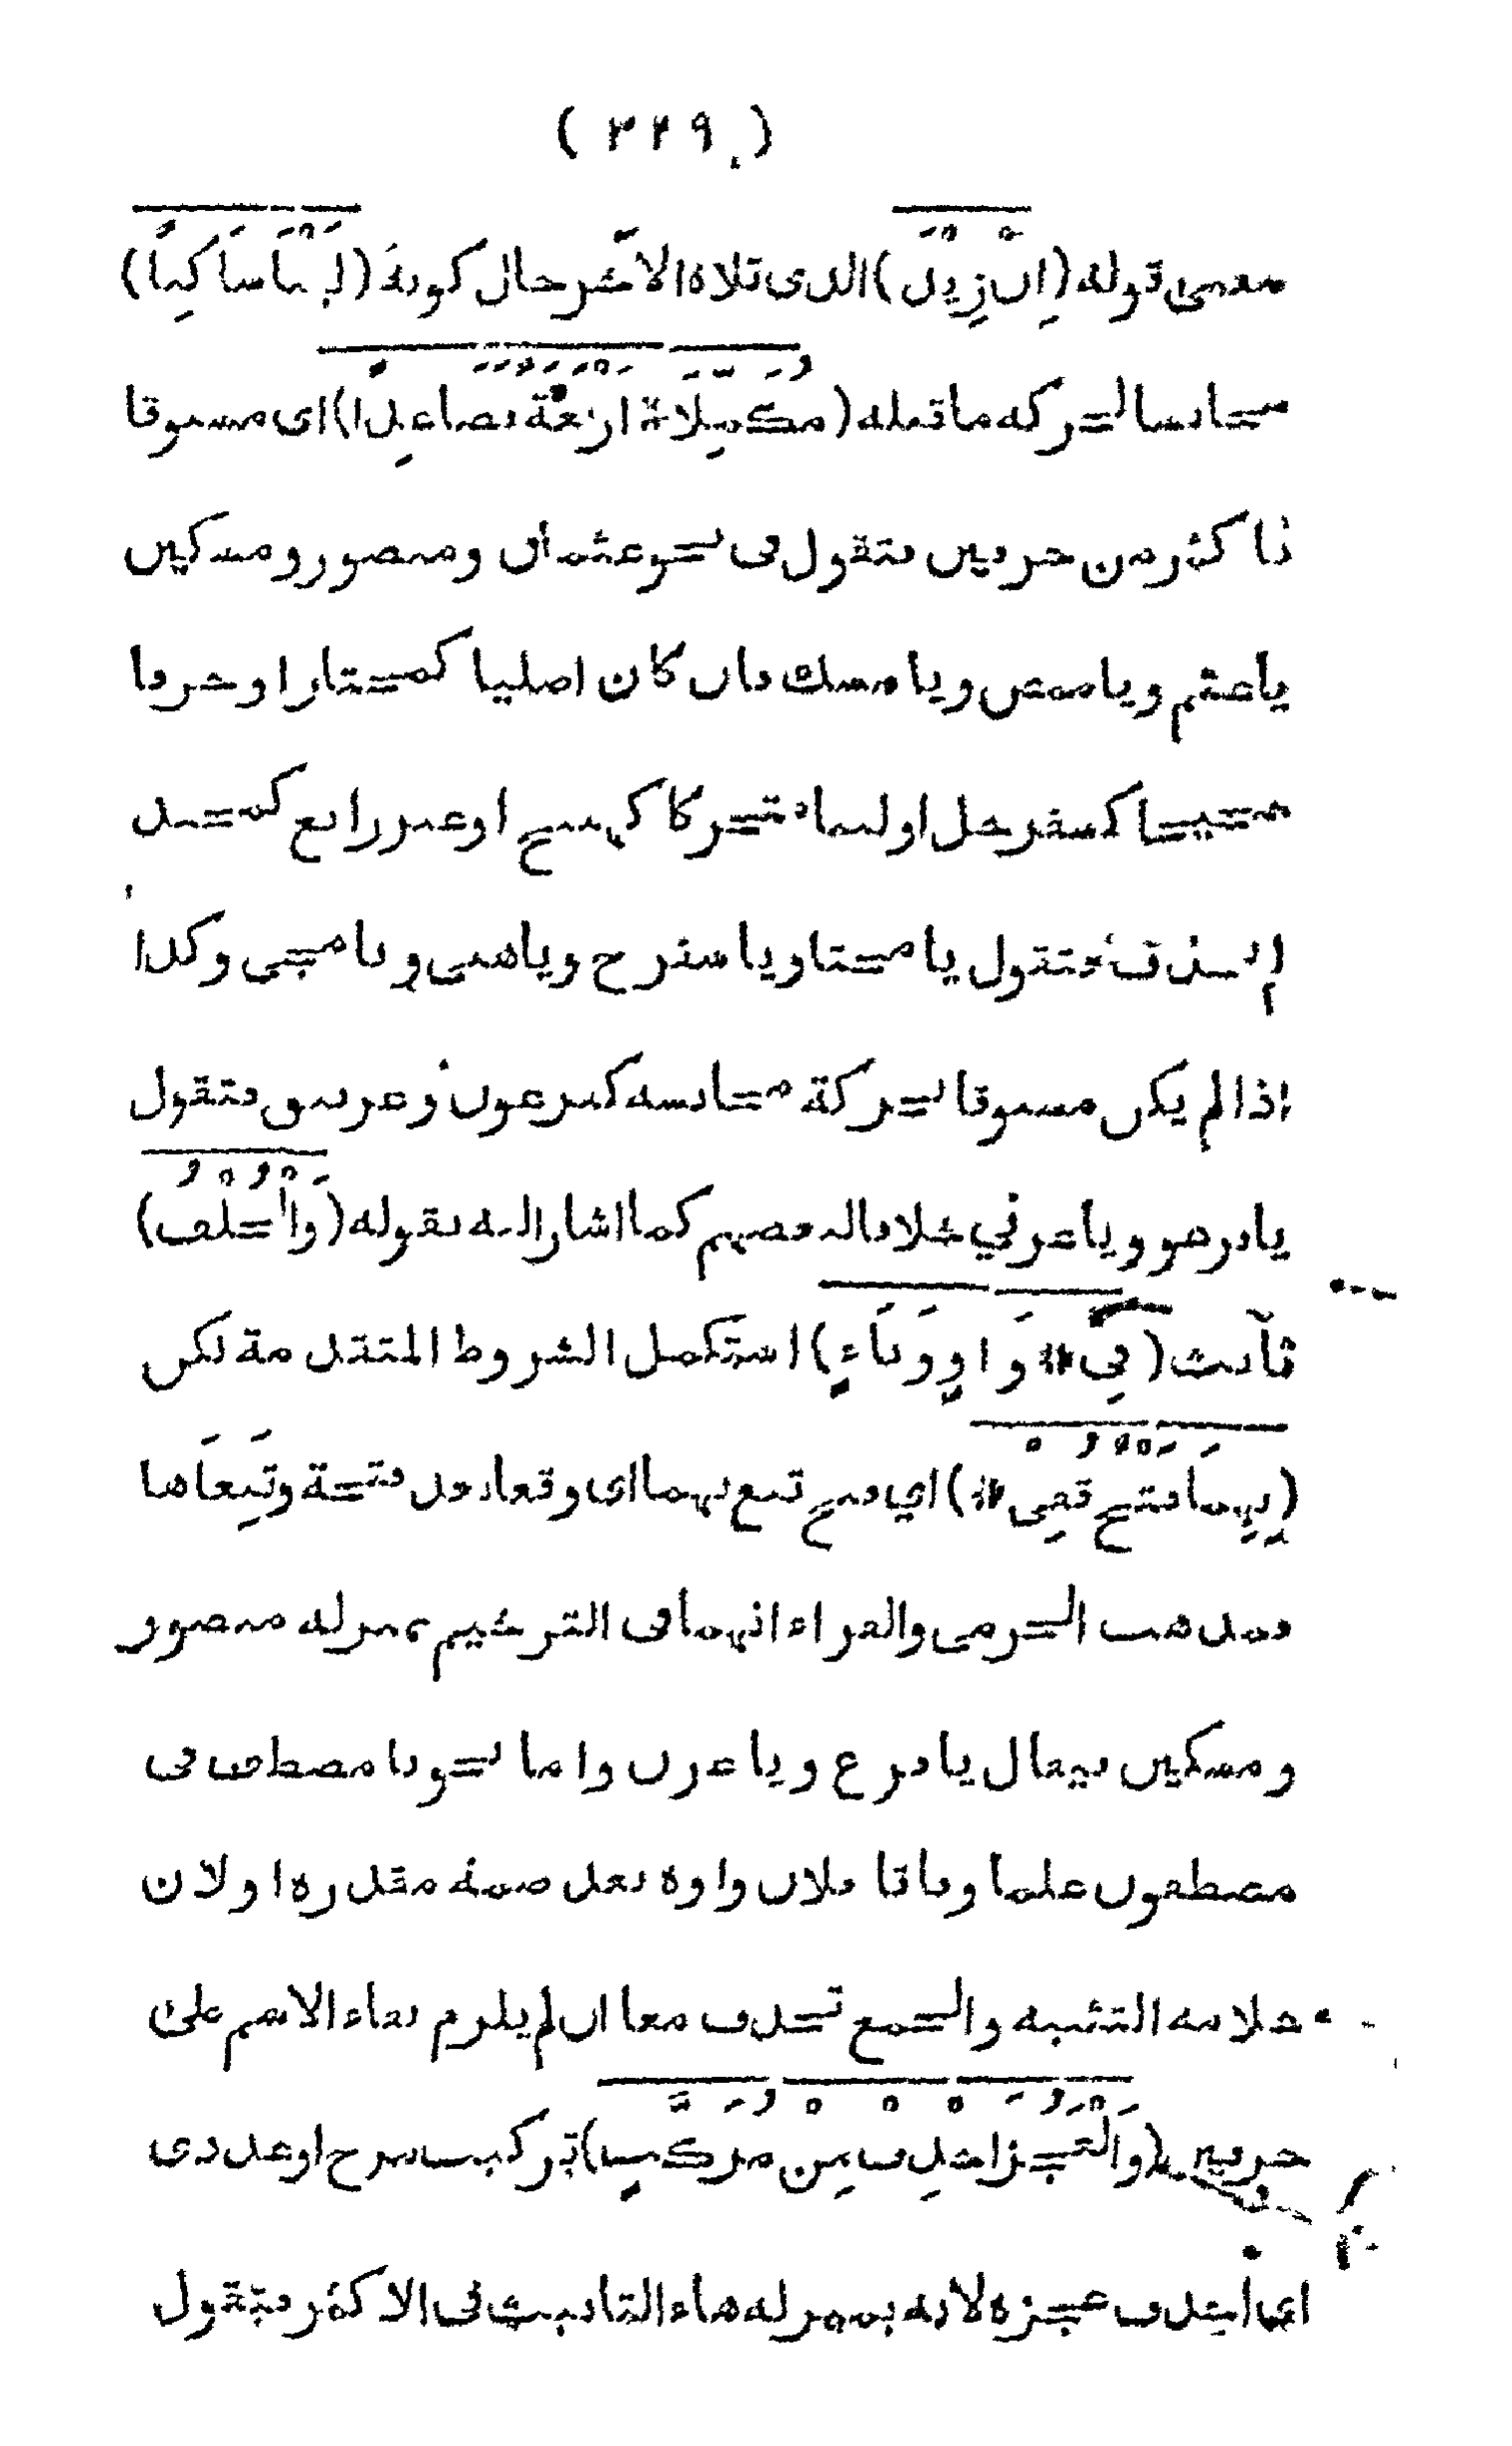 ( ٣٢٩ )
معنى قوله (اِنْ زِيْدَ) الذى تلاه الآخر حال كونه (لَيْنًا سَاكِنًا)
مجانسا لحركه ما قبله (مُكَمِّلَاً * اَرْبَعَةً فَصَاعِدًا) اى مسبوقا
باكثر من حرفين فتقول فى نحو عثمان ومنصور ومسكين
ياعثم ويامنص ويا مسك فان كان اصليا كمختار او حرفا
صحيحا كسفرجل او لينا متحركا كهبيخ او غير رابع كمجيد
لم يحذف فتقول يا مختا ويا سفرج وياهبى ويا مجى وكذا
اذا لم يكن مسبوقا بحركة مجانسه كفرعون وغرنيق فتقول
يا فرعو ويا غرني خلافا لبعضهم كما اشار اليه بقوله (وَالْخُلْفُ)
ثابت (فِىْ * وَاوٍ وَيَاءٍ) استكمل الشروط المتقدمة لكن
(بِهِمَا فَتْحٌ قُفِىْ *) اي فتح تبع بهما اى وقعا بعد فتحة وتَبِعَاها
فمذهب الجرمى والفراء انهما فى الترخيم بمنزله منصور
ومسكين فيقال يا فرع ويا غرن واما نحو يا مصطفى فى
مصطفون علما وفاقا فلان واوه بعد ضمه مقدره او لان
علامه التثنيه والجمع تحذف معا ان لم يلزم بقاء الاسم على
حرفين (وَالْعَجُزَ احْذِفْ مِنْ مُرَكَّبٍ) تركيب مزح او عددى
اى احذف عجزه لانه بمنزله هاء التانيث فى الاكثر فتقول